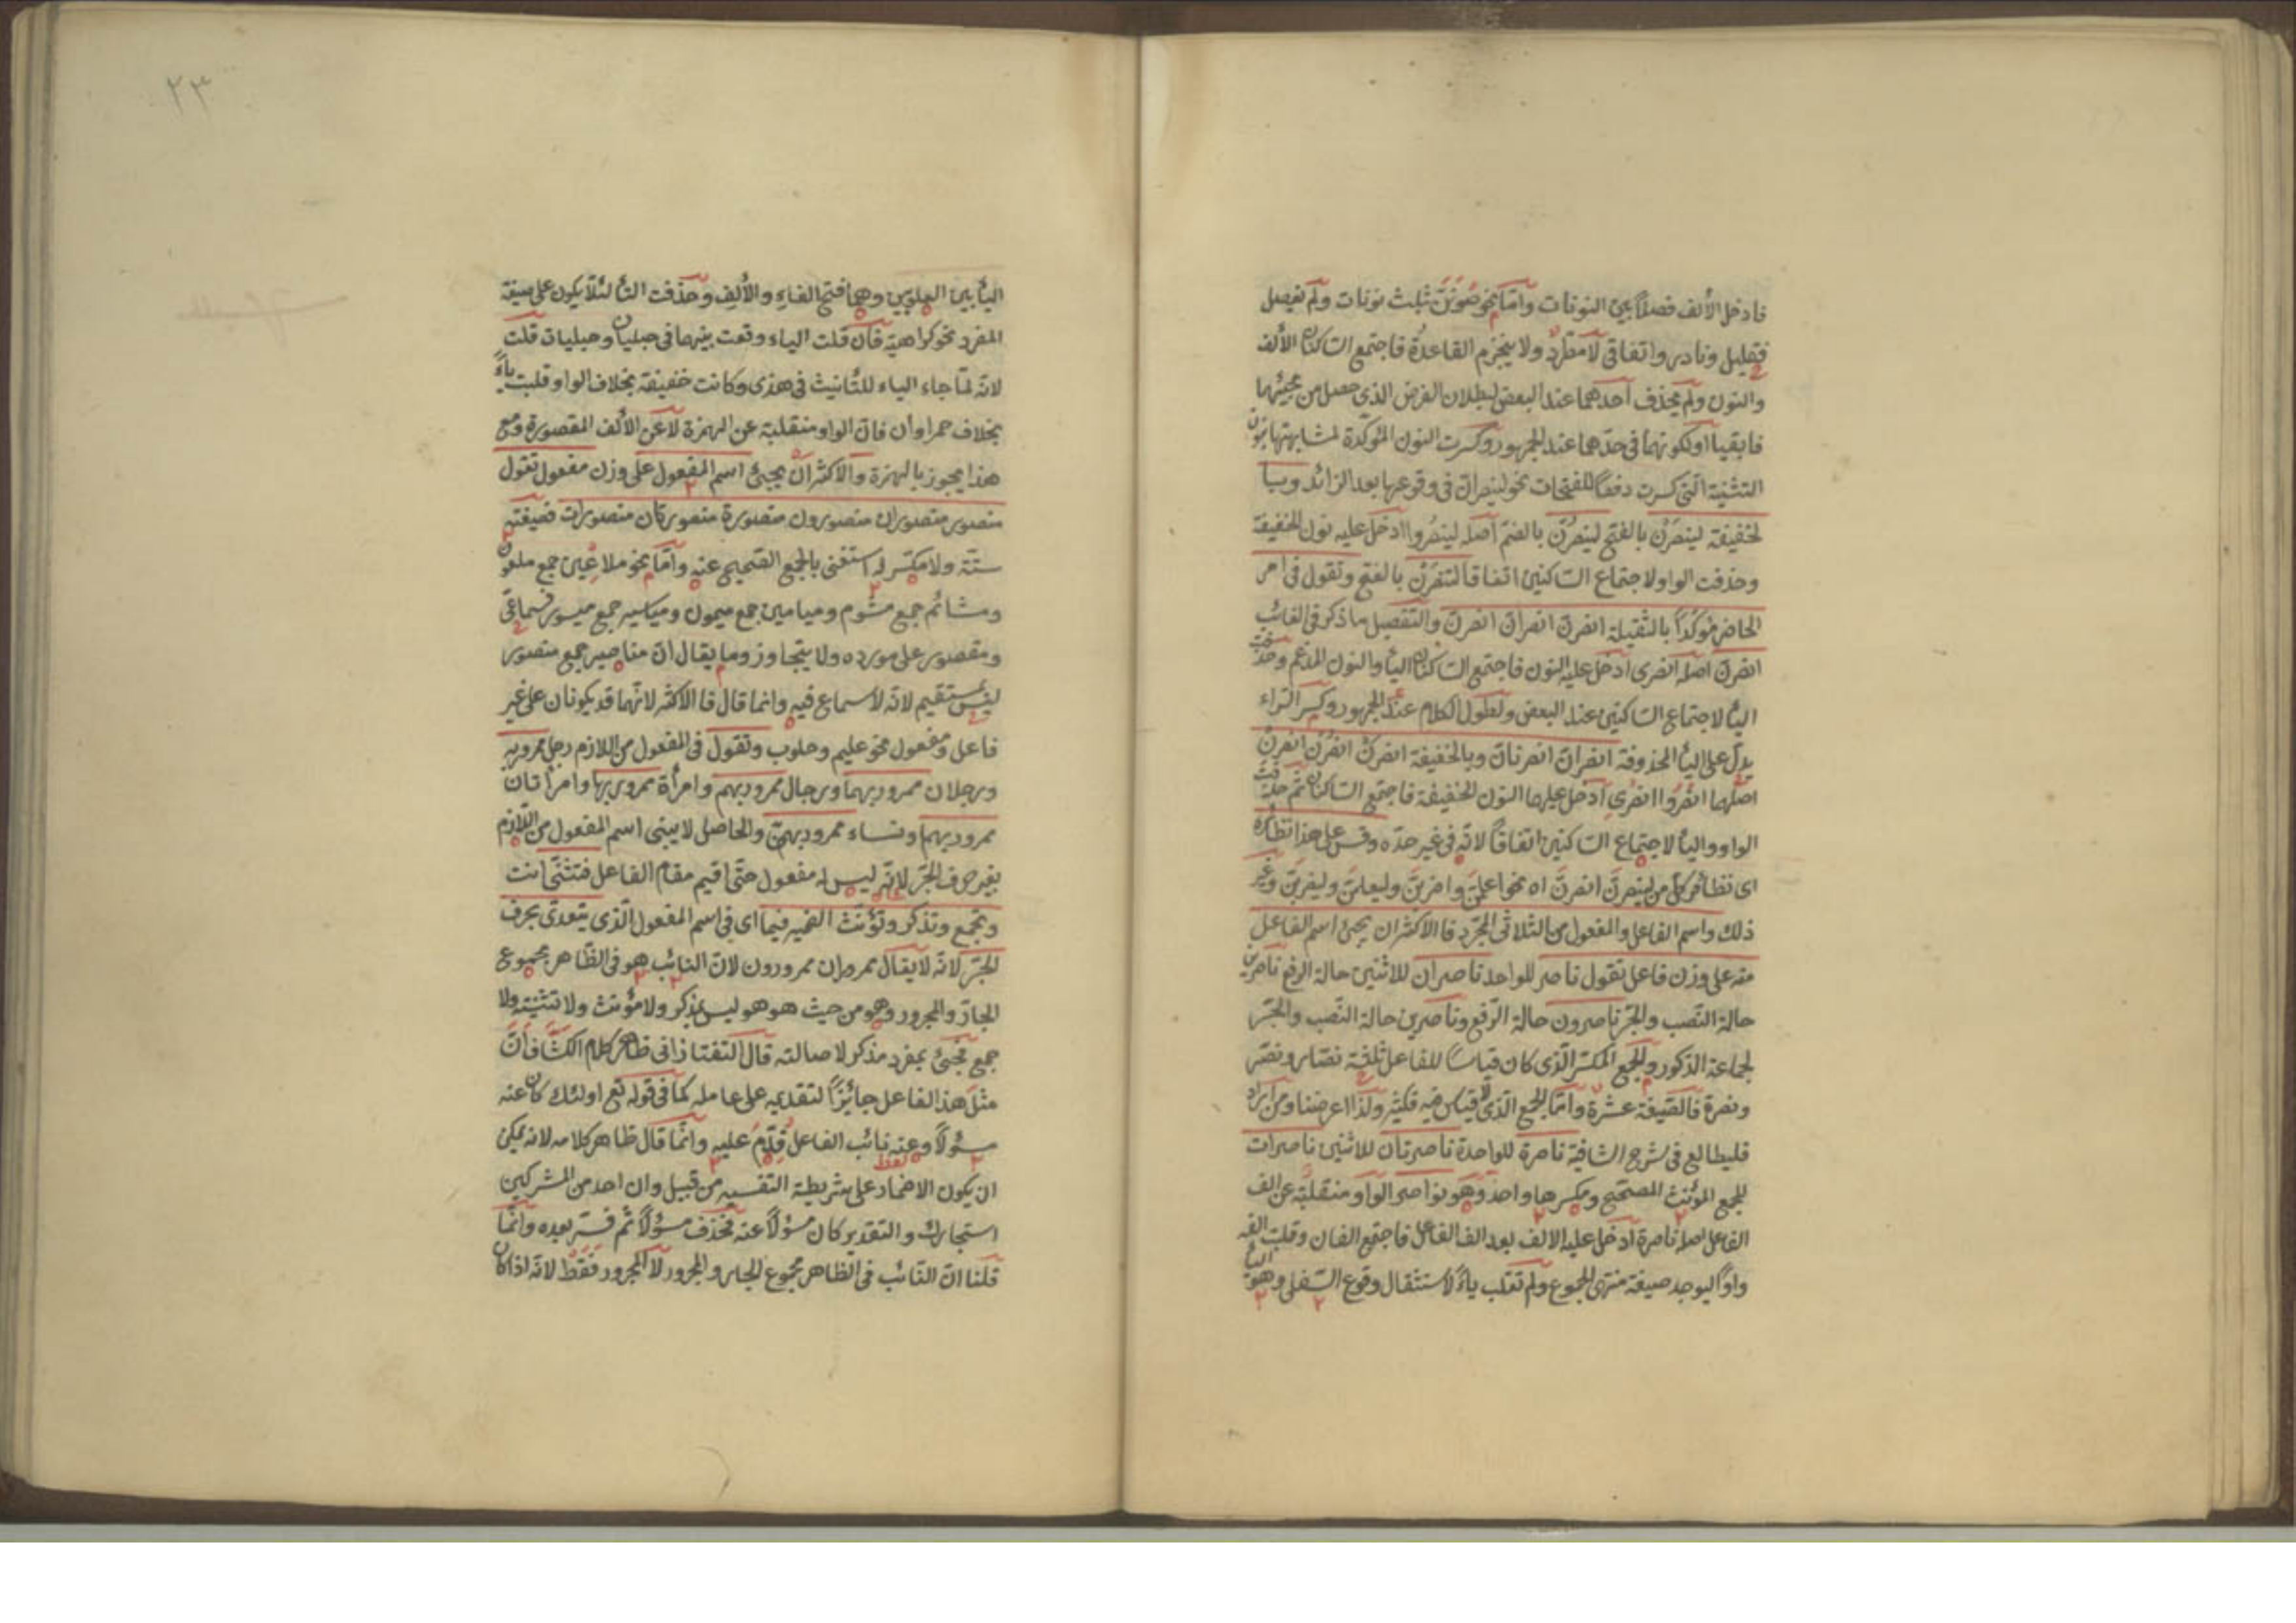 فادخل الألف فصلاً بين النونات وامّا نحو ضوننّ ثلث نونات ولم تفصل
فقليل ونادر واتفاقى لا مطّرد ولا ينجزم القاعدة فاجتمع الساكنان الألف
والنون ولم يحذف أحدهما عند البعض لبطلان الغرض الذى حصل من مجيئها
فابقيا اولكونهما فى حدّهما عند الجمهور وكسرت النون المؤكدة لمشابهتها بنون
التثنية الّتى كسرت دفعًا للفتحات نحو لينصرانّ فى وقوعها بعد الزائد وبيا
لخفيفة لينصرن بالفتح لينصرن بالضم أصله لينصروا ادخل عليه نون الخفيفة
وحذفت الواو لاجتماع الساكنين اتفاقا لتنصرن بالفتح وتقول فى امر
الحاضر مؤكدًا بالثقيلة انصرنّ انصرانّ انصرنّ والتفصيل ما ذكر فى الغائب
انصرنّ اصله انصرى ادخل عليه النون فاجتمع الساكنان اليأ والنون المدغم وحذفت
اليأ لاجتماع الساكنين عند البعض ولطول الكلام عند الجمهور وكسر الراء
يدلّ على اليأ المحذوفة انصرانّ انصرنانّ وبالخفيفة انصرن انصرن انصرن
اصلها انصروا انصرى ادخل عليها النون الخفيفة فاجتمع الساكنان ثم حذفت
الواو واليأ لاجتماع الساكنين اتفاقًا لانّه فى غير حدّه وقس على هذا نظائره
اى نظائر كلّ من لينصرنّ انصرنّ اه نحو اعلمنّ واضربنّ وليعلمنّ وليضربنّ وغير
ذلك واسم الفاعل والمفعول من الثلاثى المجرّد فالاكثر ان يجئ اسم الفاعل
منه على وزن فاعل تقول ناصر للواحد ناصران للاثنين حالة الرفع ناصرين
حالة النّصب والجرّ ناصرون حالة الرّفع وناصرين حالة النّصب والجرّ
لجماعة الذكور والجمع المكسّر الّذى كان قياسًا للفاعل ثلثة نصّار ونصّر
ونصرة فالصّيغة عشرة وأمّا الجمع الّذى لا قياس فيه فكثير ولذا اعرضنا ومن اراد
فليطالع فى شرح الشافية ناصرة للواحدة ناصرتان للاثنين ناصرات
لجمع المؤنّث المصحّح ومكسرها واحد وهو نواصر الواو منقلبة عن الف
الفاعل اصله ناصرة ادخل عليه الالف بعد الف الفاعل فاجتمع الفان وقلبت الفه
واوًا ليوجد صيغة منتهى الجموع ولم تقلب ياءً لاستثقال وقوع السّفلى وهو اليأ
٢٣
اليأ بين العلويين وهما فتح الفاء والألف وحذفت التأ لئلّا يكون على صيغة
المفرد نحو كراهية فان قلت الياء وقعت بينهما فى حبليان وحبليات قلت
لانّه لمّا جاء الياء للتّأنيث فى هذى وكانت خفيفة بخلاف الواو قلبت ياءً
بخلاف حمراوان فانّ الواو منقلبة عن الهمزة لا عن الألف المقصورة ومع
هذا يجوز بالهمزة والاكثر انّ يجئ اسم المفعول على وزن مفعول تقول
منصور منصوران منصورون منصورة منصورتان منصورات فصيغته
ستّة ولا مكسّر له استغنى بالجمع الصّحيح عنه وأمّا نحو ملاعين جمع ملعون
ومشائم جمع مشوم وميامين جمع ميمون ومياسير جمع ميسور فسماعىّ
ومقصور على مورده ولا يتجاوز وما يقال انّ مناصير جمع منصور
ليس بمستقيم لانّه لا سماع فيه وانما قال فالاكثر لانّهما قد يكونان على غير
فاعل ومفعول نحو عليم وحلوب وتقول فى المفعول من اللازم رجل ممرور به
ورجلان ممرور بهما ورجال ممرور بهم وامرأة ممرور بها وامرأتان
ممرور بهما ونساء ممرور بهنّ والحاصل لا يبنى اسم المفعول من اللّازم
بغير حرف الجرّ لانّه ليس له مفعول حتّى اقيم مقام الفاعل فتثنّى انت
وتجمع وتذكر وتؤنّث الضمير فيما اى فى اسم المفعول الّذى يتعدى بحرف
الجرّ لانّه لا يقال ممروران ممرورون لانّ النائب هو فى الظّاهر مجموع
الجارّ والمجرور وهو من حيث هو هو ليس بمذكر ولا مؤنث ولا تثنية ولا
جمع فجئ بمفرد مذكر لاصالته قال التفتازانى ظاهر كلام الكشّاف أنّ
مثل هذا الفاعل جائز التقديم على عامله كما فى قوله تع اولئك كان عنه
مسؤلاً وعنه نائب الفاعل قدّم عليه وانّما قال ظاهر كلامه لانه يمكن
ان يكون الاضمار على شريطة التفسير من قبيل وان احد من المشركين
استجارك والتقدير كان مسؤلاً عنه فحذف مسؤلاً ثم فسّر بعده وانّما
قلنا انّ النّائب فى الظّاهر مجموع الجار والمجرور لا المجرور فقط لانّه اذا كان